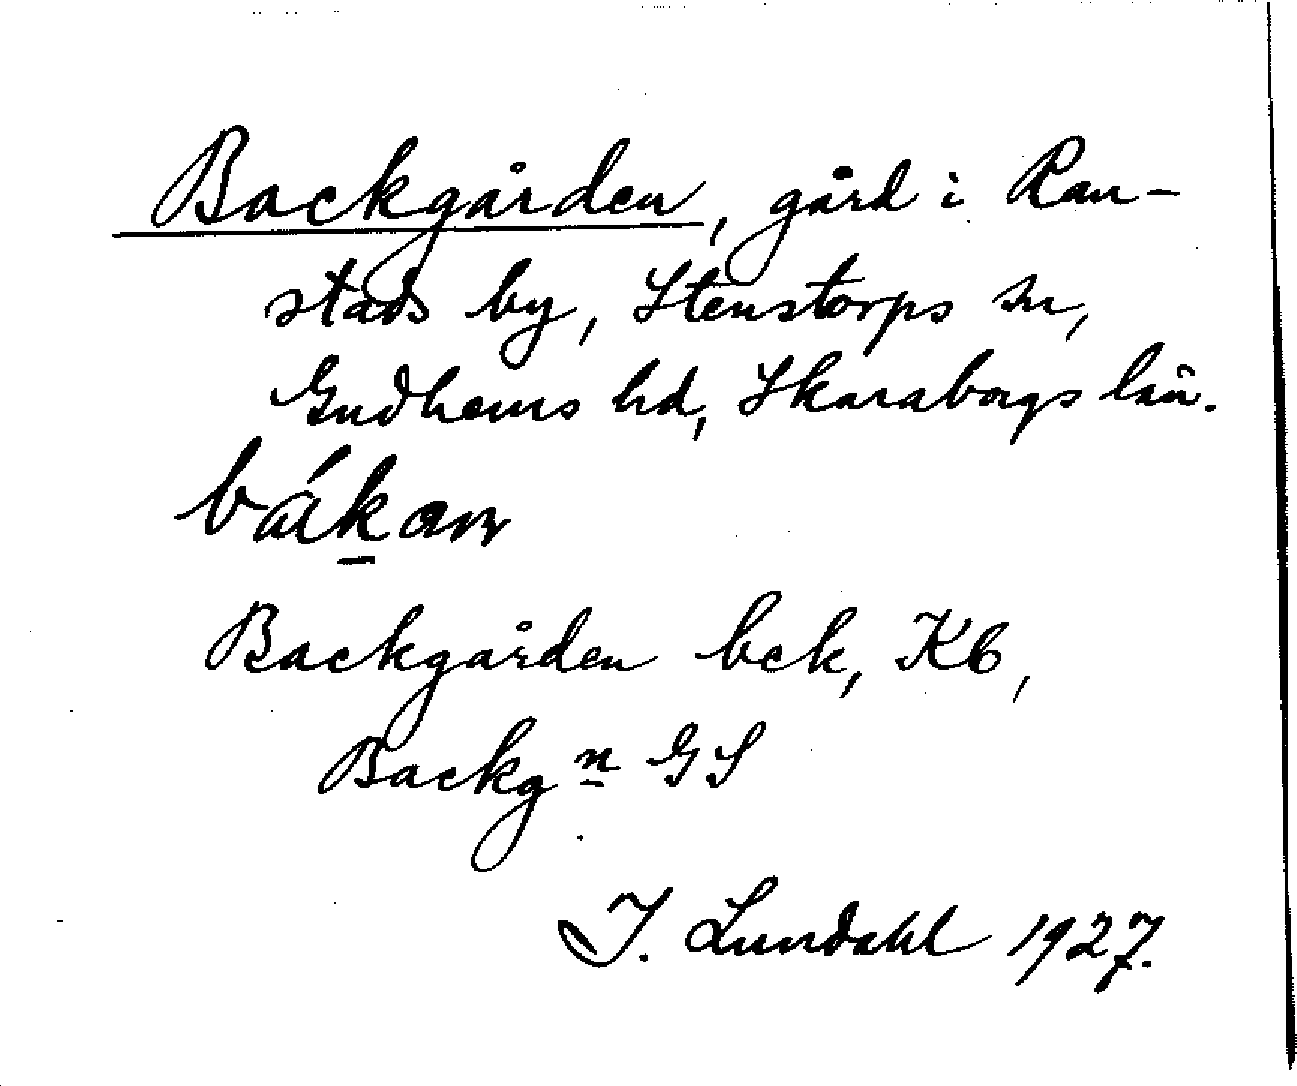 Backgården, gård i Ran-
stads by, Stenstorps sn,
Gudhems hd, Skaraborgs län.
bák̲an
Backgården bck, Kb,
Backgn GS
I. Lundahl 1927.